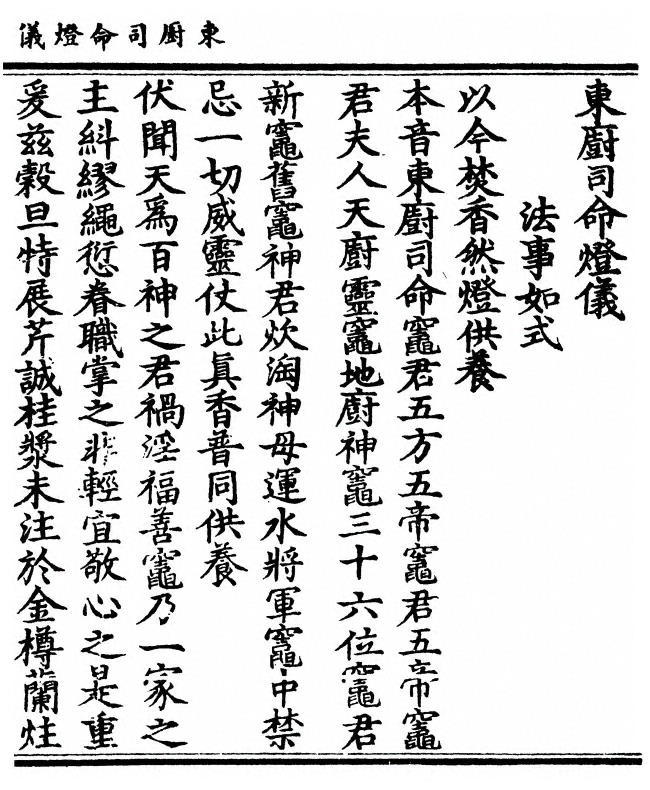 東廚司命燈儀
東廚司命燈儀
法事如式
以今焚香然燈供養
本音東廚司命竈君五方五帝竈君五帝竈
君夫人天廚靈竈地廚神竈三十六位竈君
新竈舊竈神君炊淘神母運水將軍竈中禁
忌一切威靈仗此眞香普同供養
伏聞天爲百神之君禍淫福善竈乃一家之
主糾繆繩愆眷職掌之非輕宜敬心之是重
爰茲榖旦特展芹誠桂漿未注於金樽蘭炷